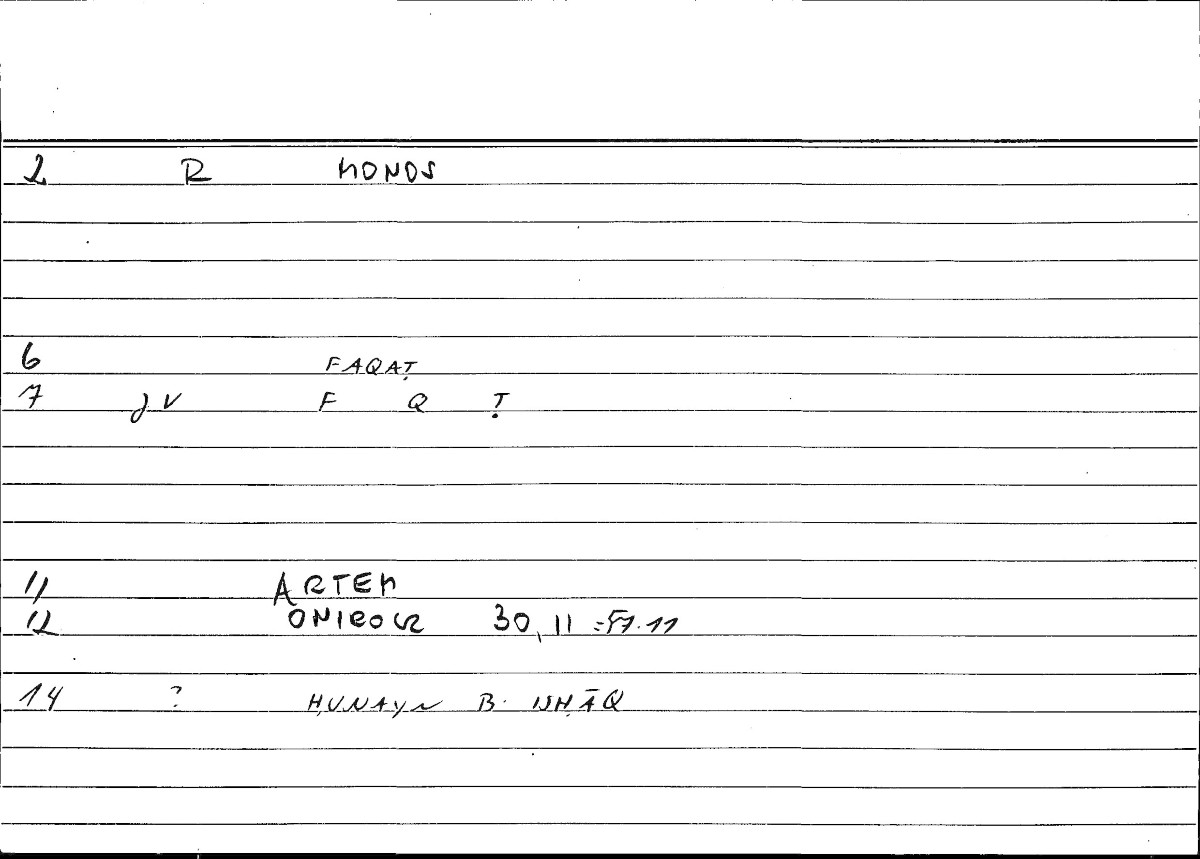 2 R MONOS
6 FAQAṬ
7 JV F Q Ṭ
11 ARTEM
12 ONIROCR 30,11 = 57.11
14 ? ḤUNAYN B. ISḤĀQ